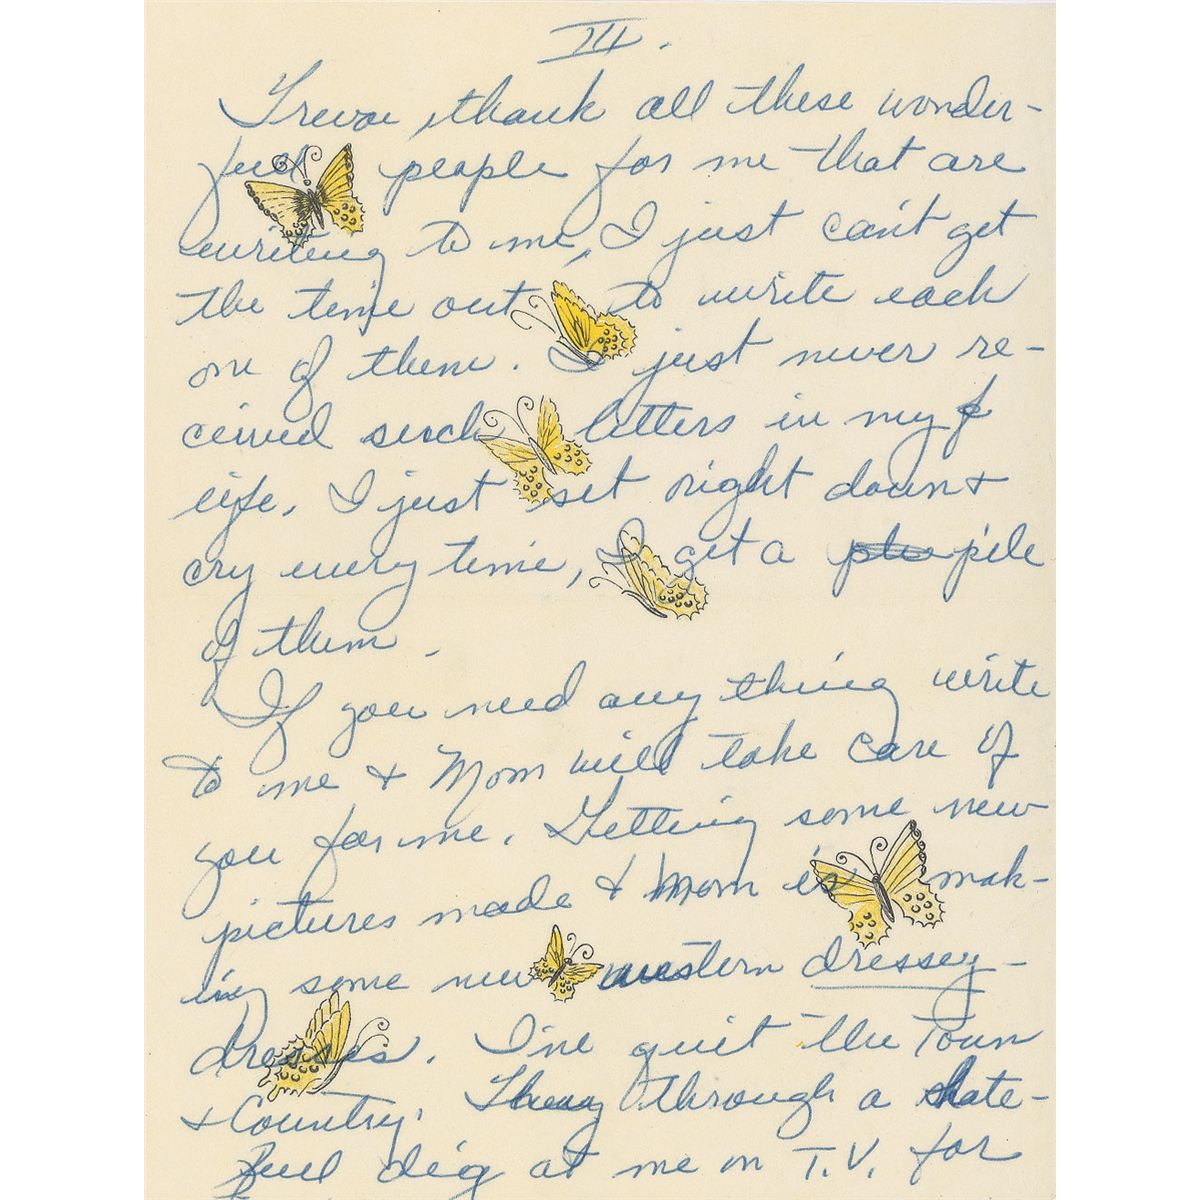 III.
Trevor, thank all these wonder-
ful people for me that are
writing to me, I just can't get
the time out to write each
one of them. I just never re-
ceived such letters in my
life. I just set right down +
cry every time, I get a pile
of them.
If you need any thing write
to me + Mom will take care of
you for me. Getting some new
pictures made + Mom is mak-
ing some new western dressey-
dresses. I've quit the Town
+ Country. They through a hate-
ful dig at me on T.V. for